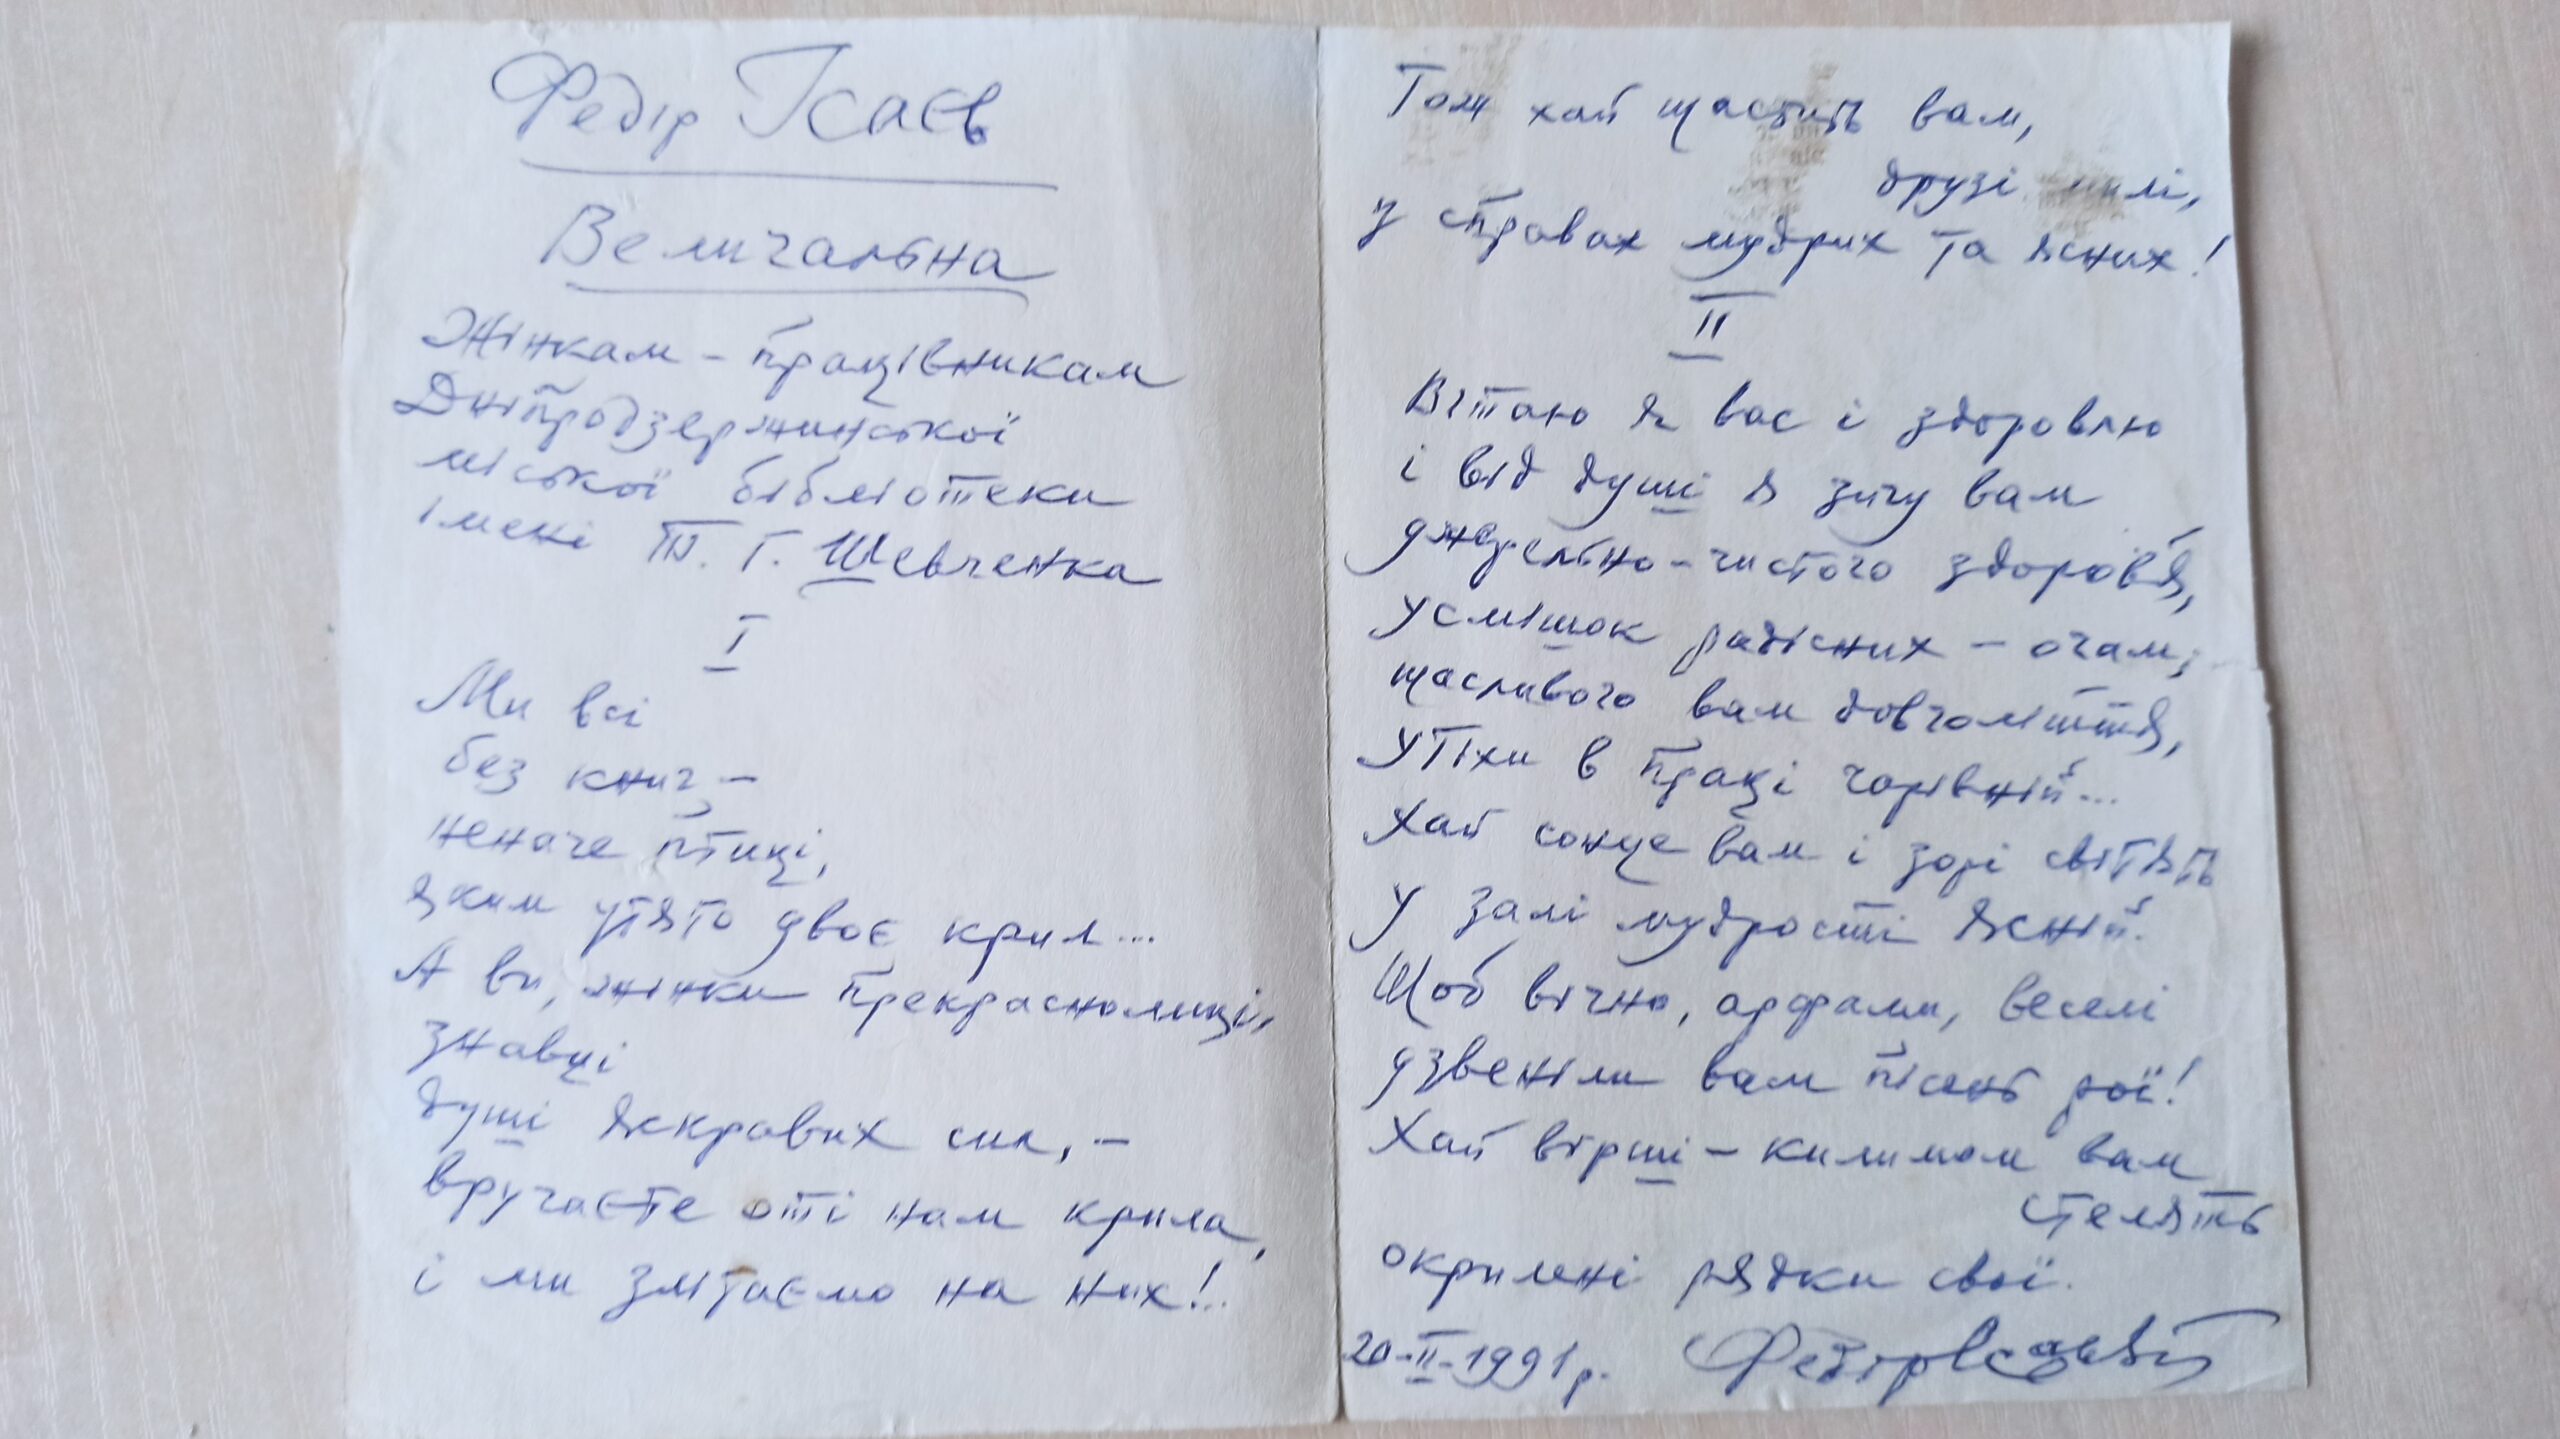 Федір Ісаєв
Величальна
Жінкам - працівникам
Дніпродзержинської
міської бібліотеки
імені Т. Г. Шевченка
I
Ми всі
без книг, -
неначе птиці,
яким утято двоє крил...
А ви, жінки прекраснолиці,
знавці
душі яскравих сил, -
вручаєте оті нам крила,
і ми злітаємо на них!..
Тож хай щастить вам,
друзі милі,
у справах мудрих та ясних!
II
Вітаю я вас і здоровлю
і від душі я зичу вам
джерельно-чистого здоров'я,
усмішок радісних - очам;
щасливого вам довголіття,
утіхи в праці чарівній...
Хай сонце вам і зорі світять
у залі мудрості ясній.
Щоб вічно, арфами, веселі
дзвеніли вам пісень рої!
Хай вірші - килимом вам
стелять
окрилені рядки свої.
20-II-1991р. Федір Ісаєв